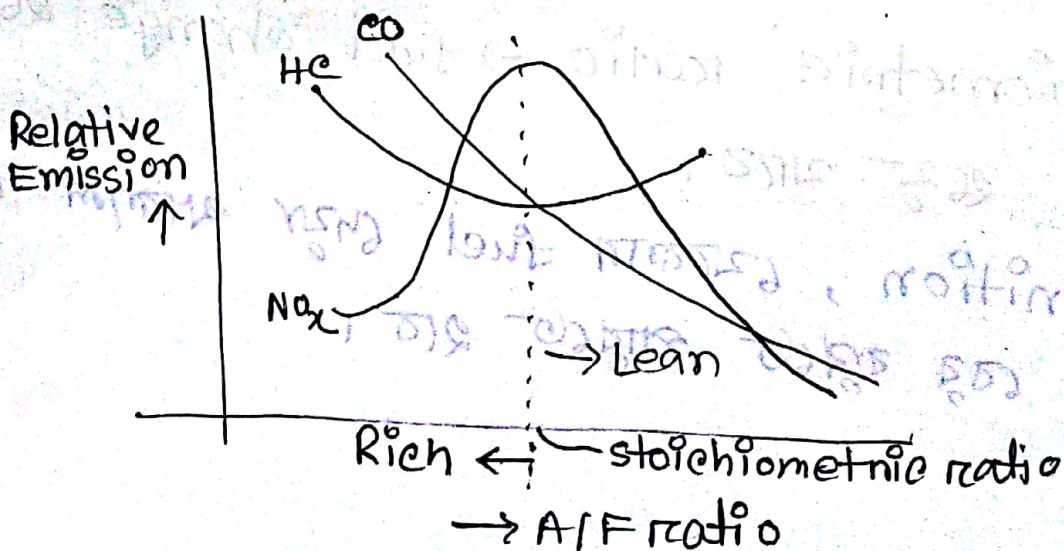 CO
HC
Relative
Emission
NOx
→ Lean
Rich ←
stoichiometric ratio
→ A/F ratio